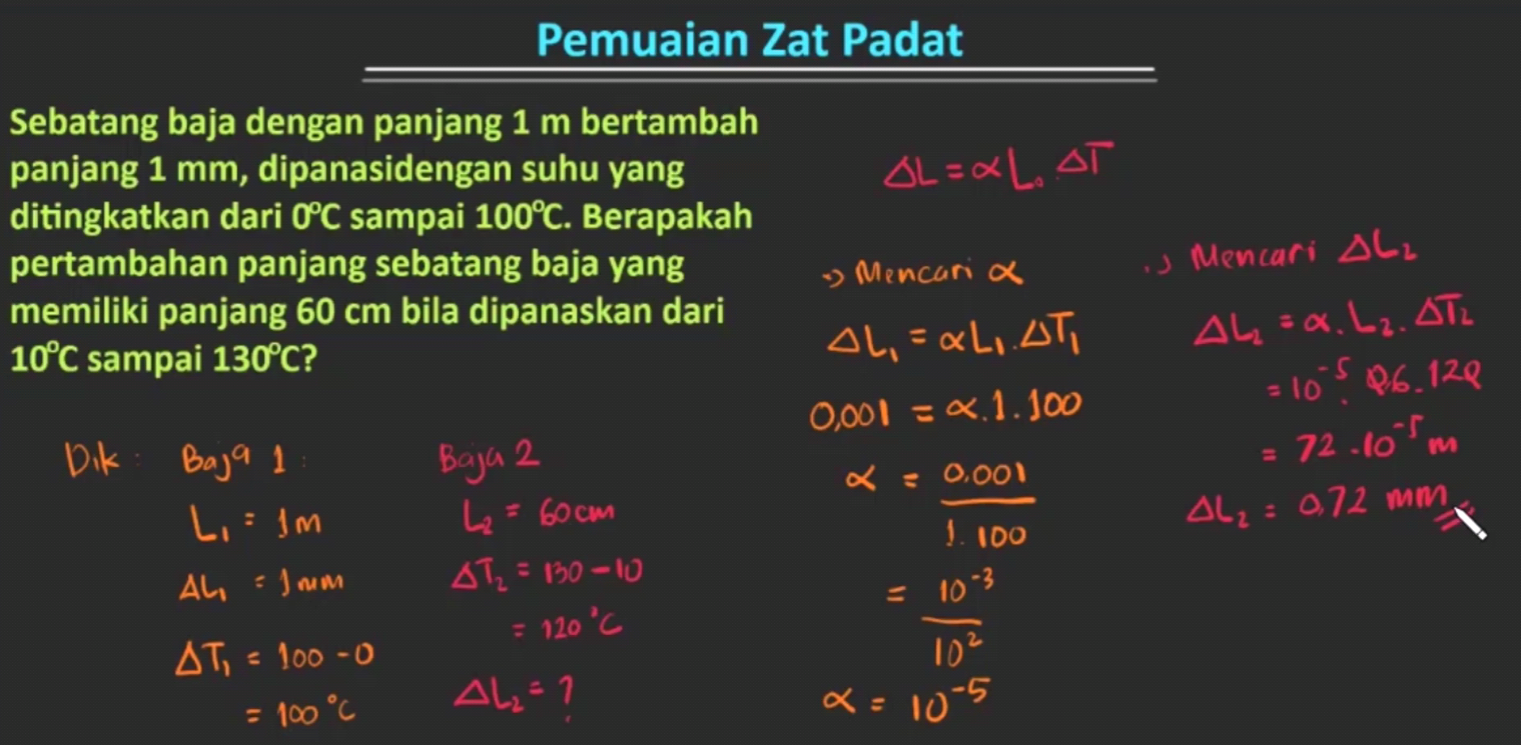 Pemuaian Zat Padat
Sebatang baja dengan panjang 1 m bertambah
panjang 1 mm, dipanasidengan suhu yang
ditingkatkan dari 0⁰C sampai 100⁰C. Berapakah
pertambahan panjang sebatang baja yang
memiliki panjang 60 cm bila dipanaskan dari
10⁰C sampai 130⁰C?
Dik : Baja 1 :
L₁ = 1 m
ΔL₁ = 1 mm
ΔT₁ = 100 - 0
= 100 °C
Baja 2
L₂ = 60 cm
ΔT₂ = 130 - 10
= 120 °C
ΔL₂ = ?
ΔL = α L₀ . ΔT
Mencari α
ΔL₁ = α L₁ . ΔT₁
0,001 = α . 1 . 100
α = 0,001
1 . 100
= 10⁻³
10²
α = 10⁻⁵
Mencari ΔL₂
ΔL₂ = α . L₂ . ΔT₂
= 10⁻⁵ . 0,6 . 120
= 72 . 10⁻⁵ m
ΔL₂ = 0,72 mm